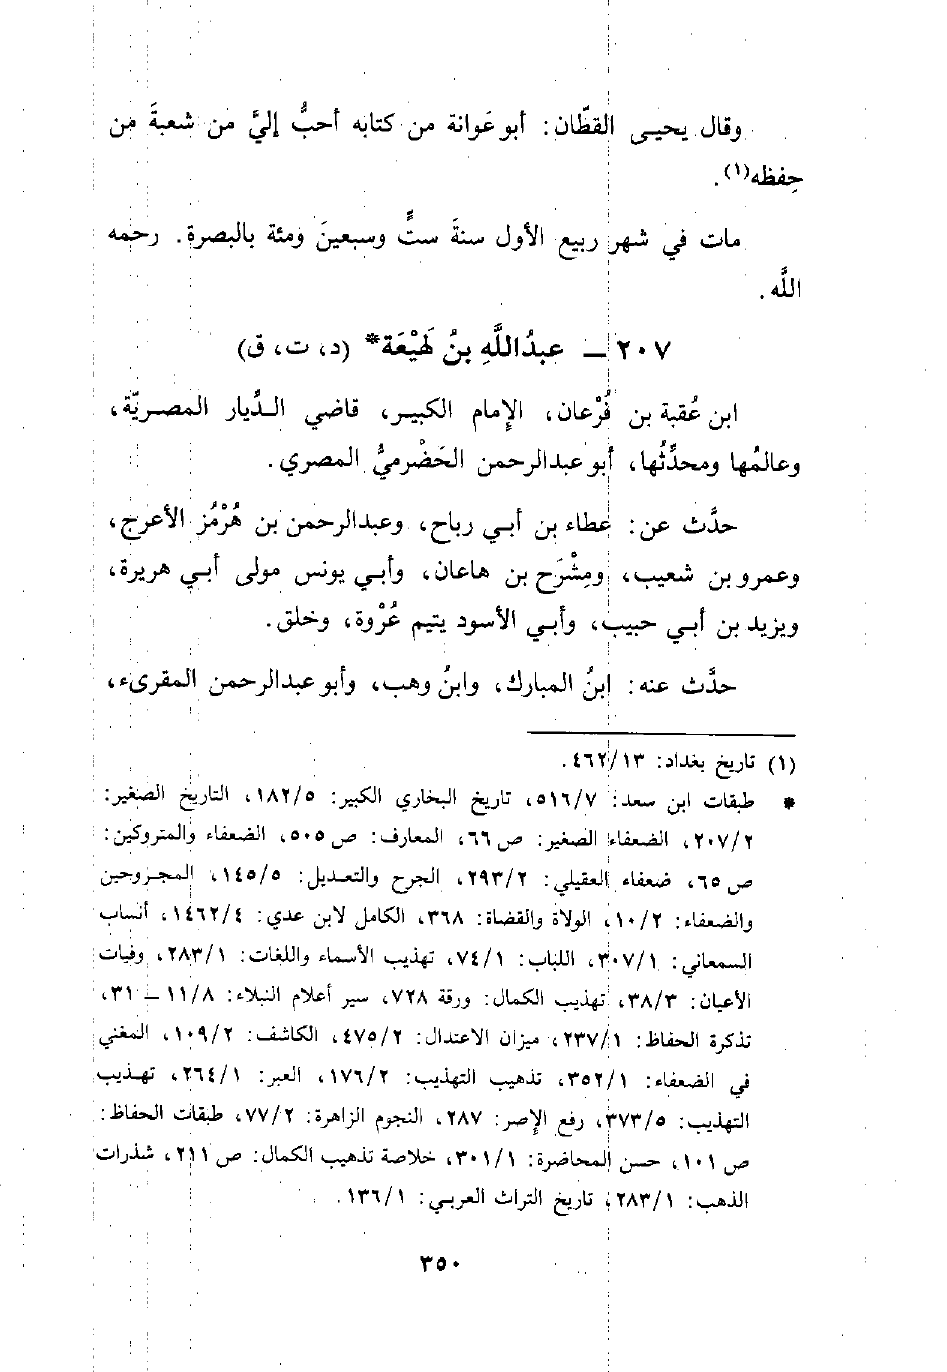 وقال يحيـى القطّان: أبو عَوانة من كتابه أحبُّ إليَّ من شعبةَ من
حِفظه(١).
مات في شهر ربيع الأول سنةَ ستٍّ وسبعينَ ومئة بالبصرة. رحمه
اللَّه.
٢٠٧ ـ عبدُاللَّهِ بنُ لَهيْعَة* (د، ت، ق)
ابن عُقبة بن فُرْعان، الإمام الكبيـر، قاضي الـدِّيار المصـريّة،
وعالمُها ومحدِّثُها، أبو عبدالرحمن الحَضْرميُّ المصري.
حدَّث عن: عطاء بن أبـي رباح، وعبدالرحمن بن هُرْمُز الأعرج،
وعمرو بن شعيب، ومِشْرَح بن هاعان، وأبـي يونس مولى أبـي هريرة،
ويزيد بن أبـي حبيب، وأبـي الأسود يتيم عُرْوة، وخلق.
حدَّث عنه: ابنُ المبارك، وابنُ وهب، وأبو عبدالرحمن المقرىء،
(١) تاريخ بغداد: ٤٦٢/١٣.
* طبقات ابن سعد: ٥١٦/٧، تاريخ البخاري الكبير: ١٨٢/٥، التاريخ الصغير:
٢٠٧/٢، الضعفاء الصغير: ص ٦٦، المعارف: ص ٥٠٥، الضعفاء والمتروكين:
ص ٦٥، ضعفاء العقيلي: ٢٩٣/٢، الجرح والتعـديل: ١٤٥/٥، المجـروحين
والضعفاء: ١٠/٢، الولاة والقضاة: ٣٦٨، الكامل لابن عدي: ١٤٦٢/٤، أنساب
السمعاني: ٣٠٧/١، اللباب: ٧٤/١، تهذيب الأسماء واللغات: ٢٨٣/١، وفيات
الأعيان: ٣٨/٣، تهذيب الكمال: ورقة ٧٢٨، سير أعلام النبلاء: ١١/٨ ـ ٣١،
تذكرة الحفاظ: ٢٣٧/١، ميزان الاعتدال: ٤٧٥/٢، الكاشف: ١٠٩/٢، المغني
في الضعفاء: ٣٥٢/١، تذهيب التهذيب: ١٧٦/٢، العبر: ٢٦٤/١، تهـذيب
التهذيب: ٣٧٣/٥، رفع الإصر: ٢٨٧، النجوم الزاهرة: ٧٧/٢، طبقات الحفاظ:
ص ١٠١، حسن المحاضرة: ٣٠١/١، خلاصة تذهيب الكمال: ص ٢١١، شذرات
الذهب: ٢٨٣/١، تاريخ التراث العربـي: ١٣٦/١.
٣٥٠